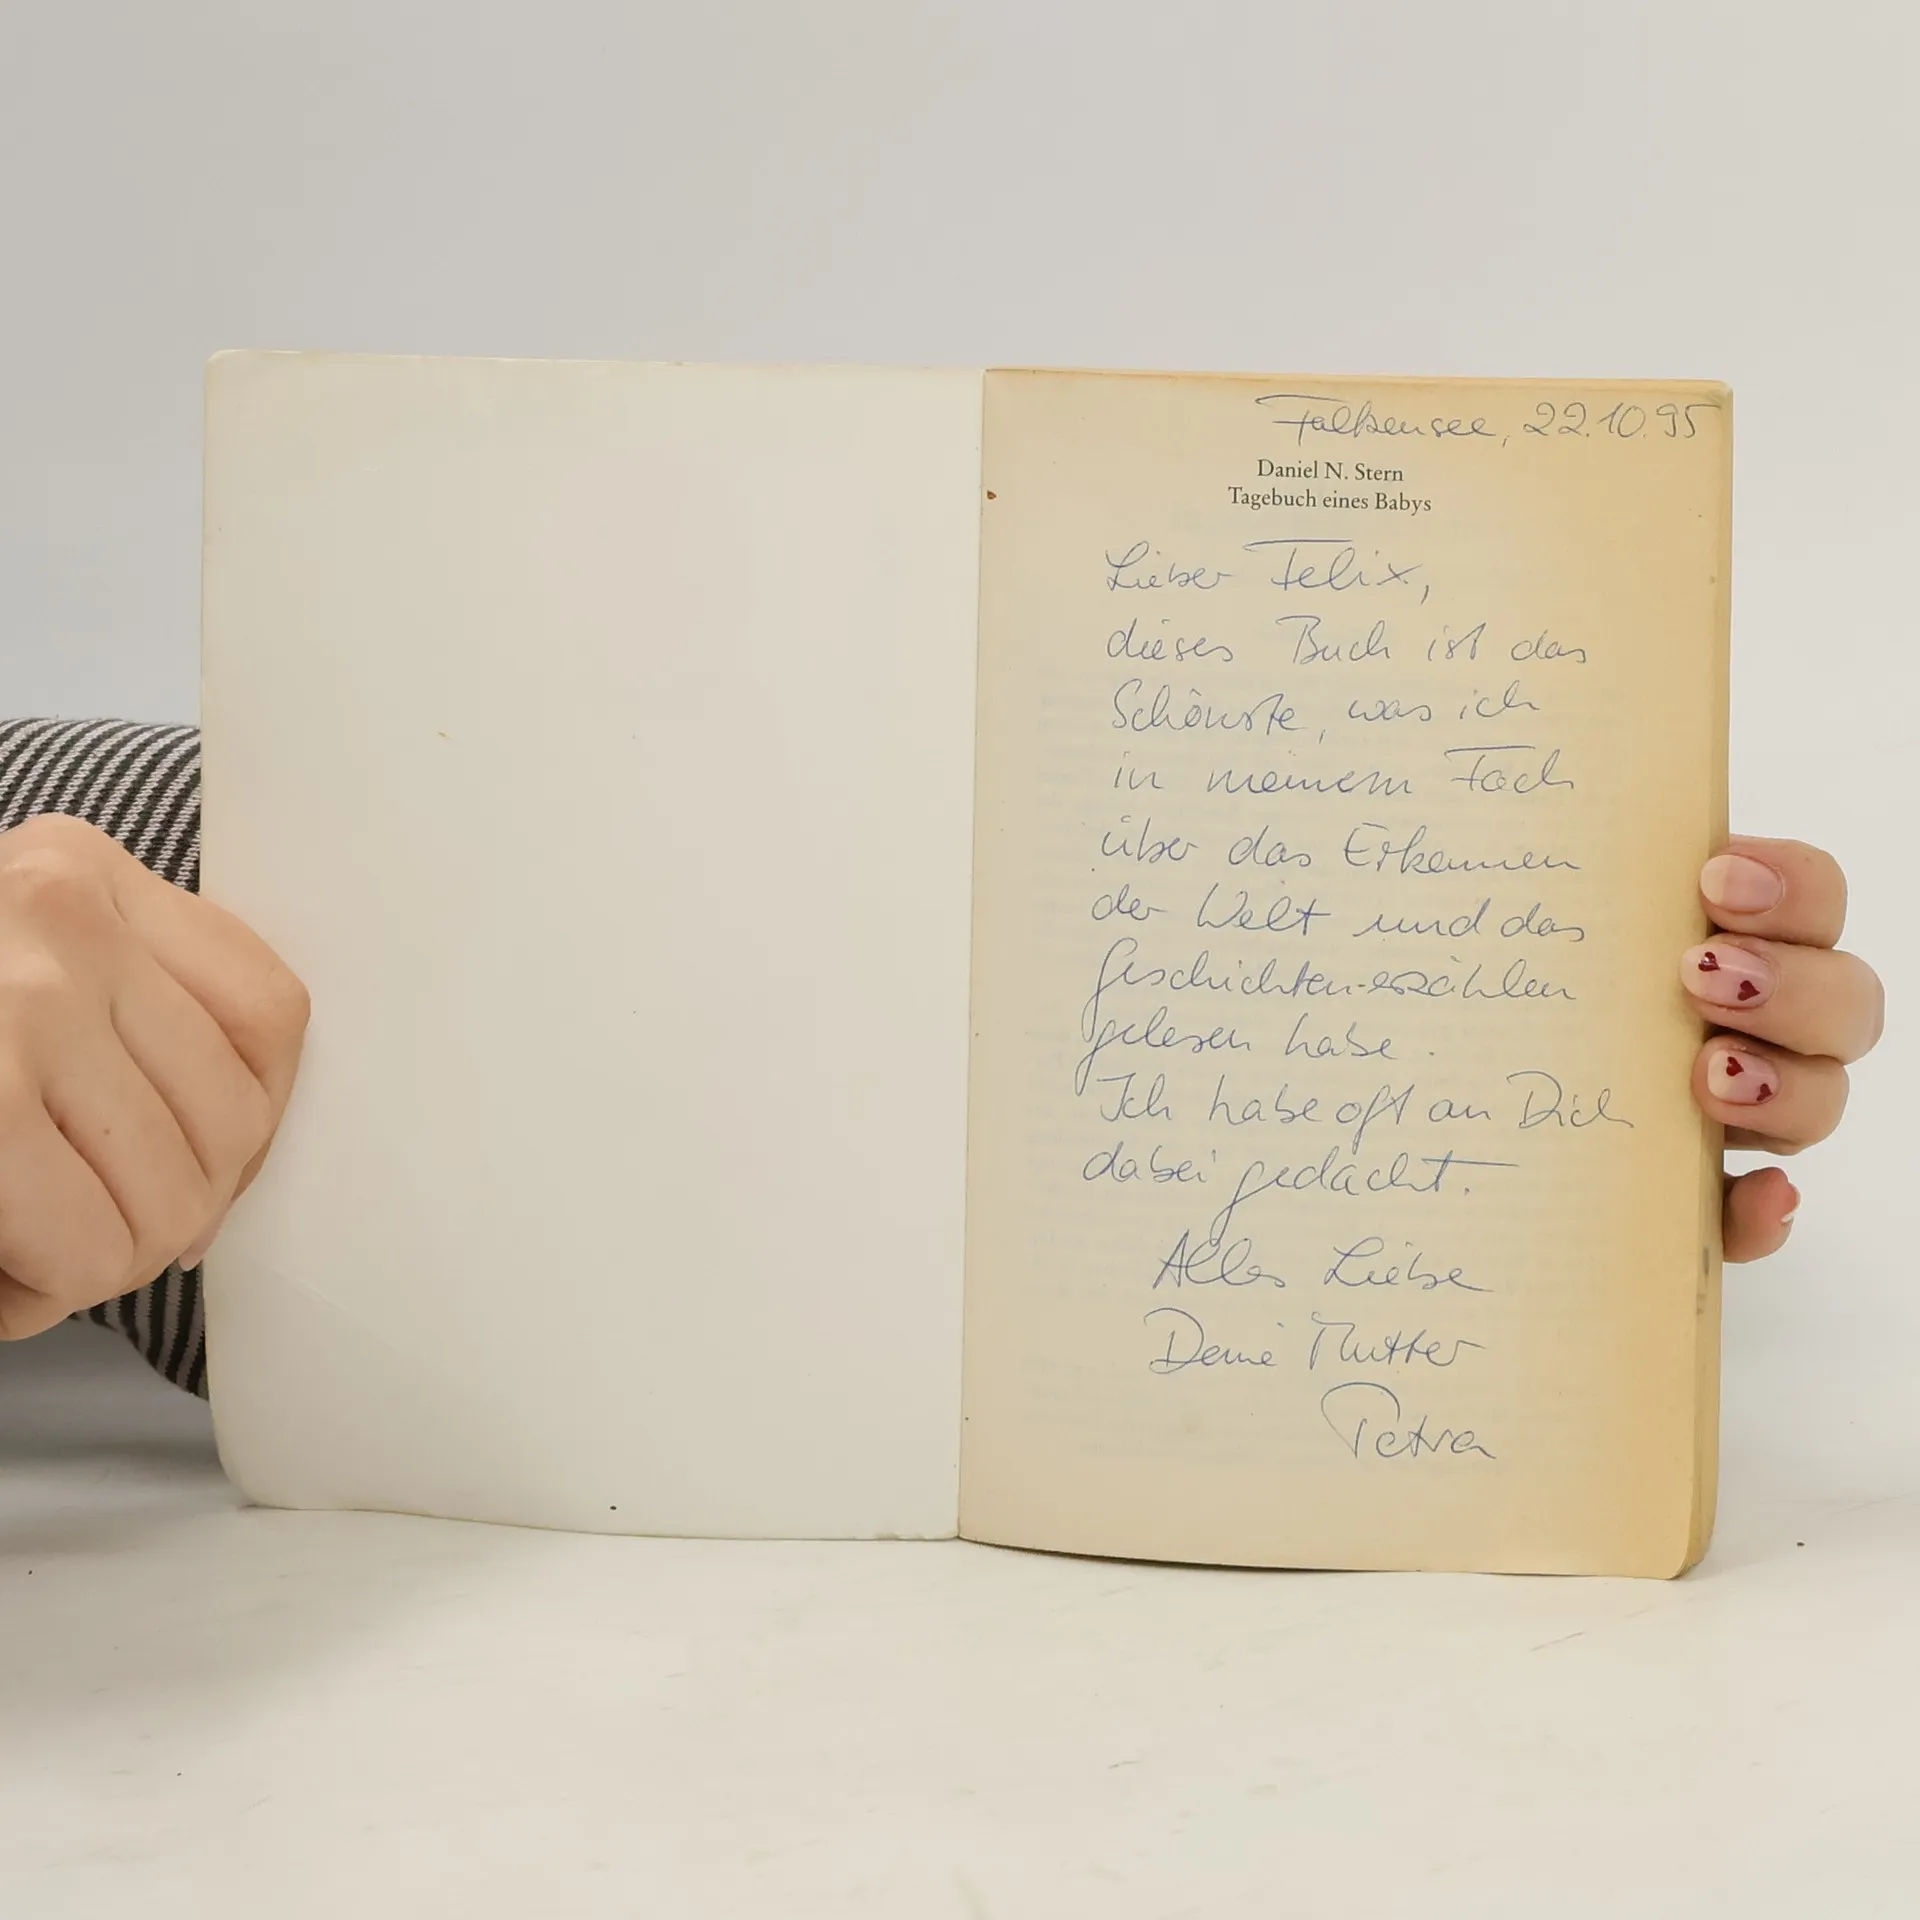 Falkensee, 22.10.95
Daniel N. Stern
Tagebuch eines Babys
Lieber Felix,
dieses Buch ist das
Schönste, was ich
in meinem Fach
über das Erkennen
der Welt und das
Geschichten-erzählen
gelesen habe.
Ich habe oft an Dich
dabei gedacht.
Alles Liebe
Deine Mutter
Petra